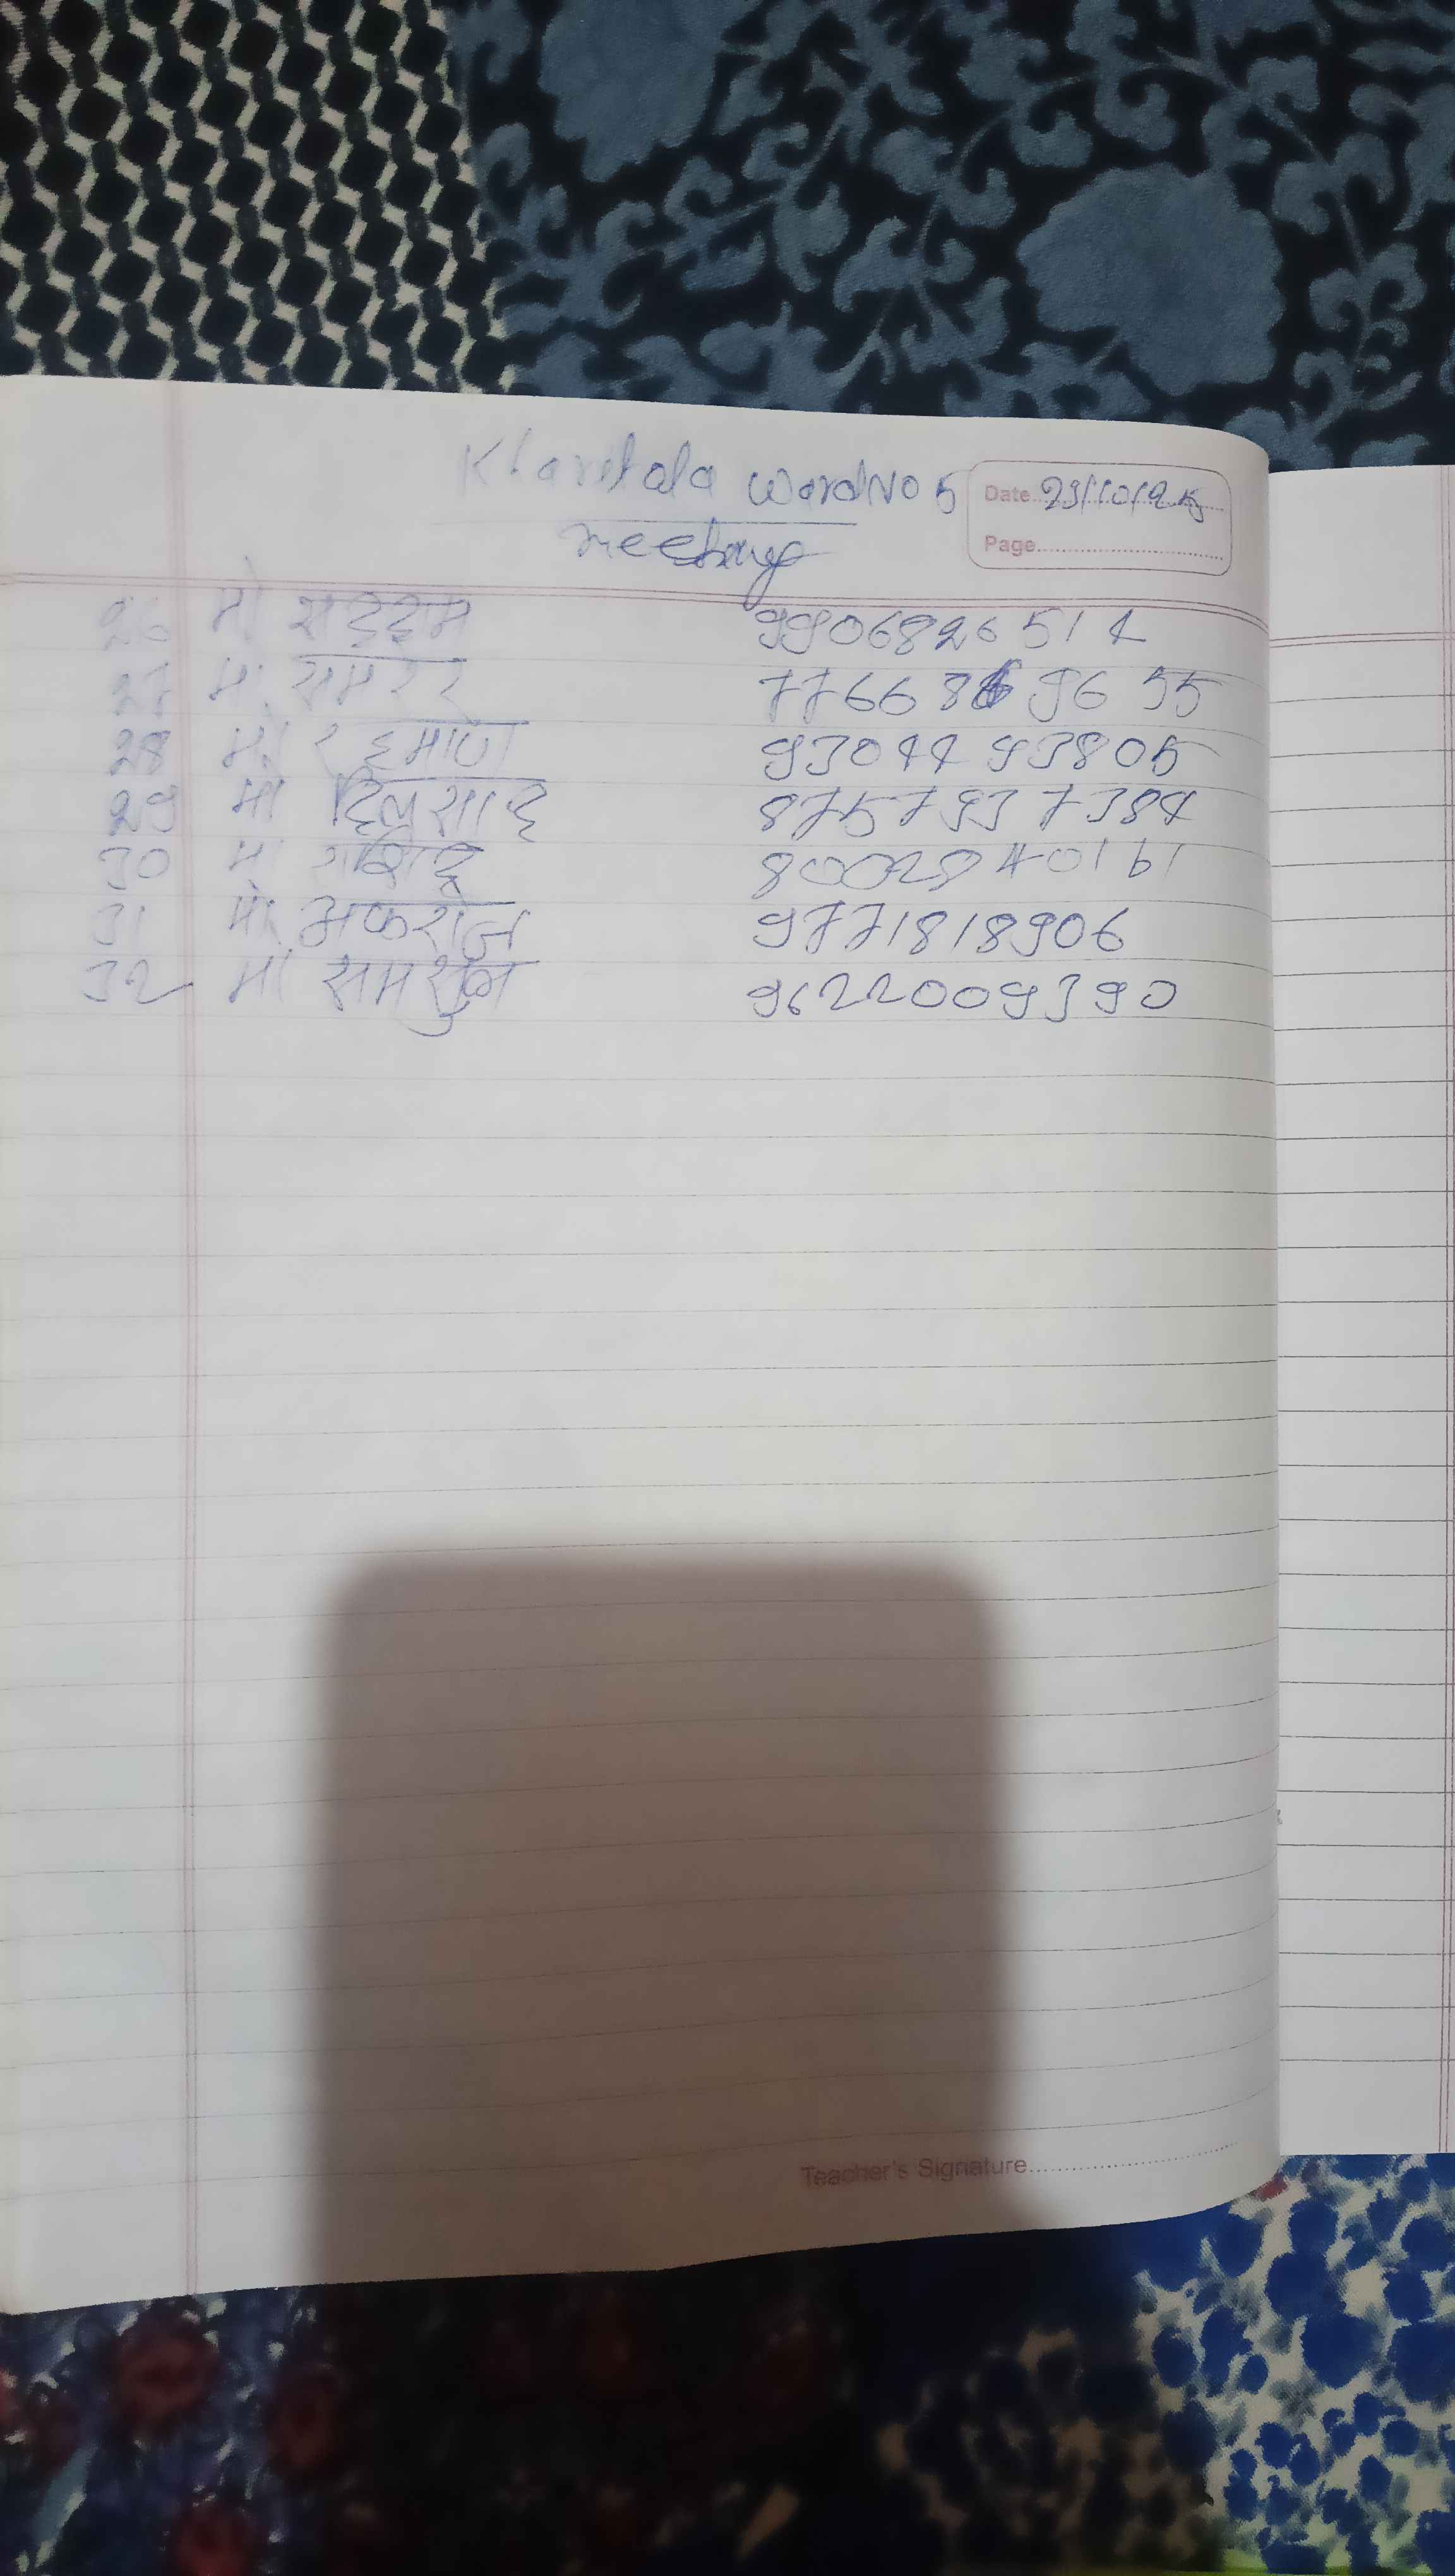 Kharitola Ward No 5
Date 23/10/25
meeting
Page
26 मो सद्दाम 9906826514
27 मो. समर 77668 96 55
28 मो. रहमान 9304493805
29 मो दिलसाद 8757937384
30 मो 8002940161
31 मो. अफरोज 9771818906
32 मो समसुल 9622009390
Teacher's Signature